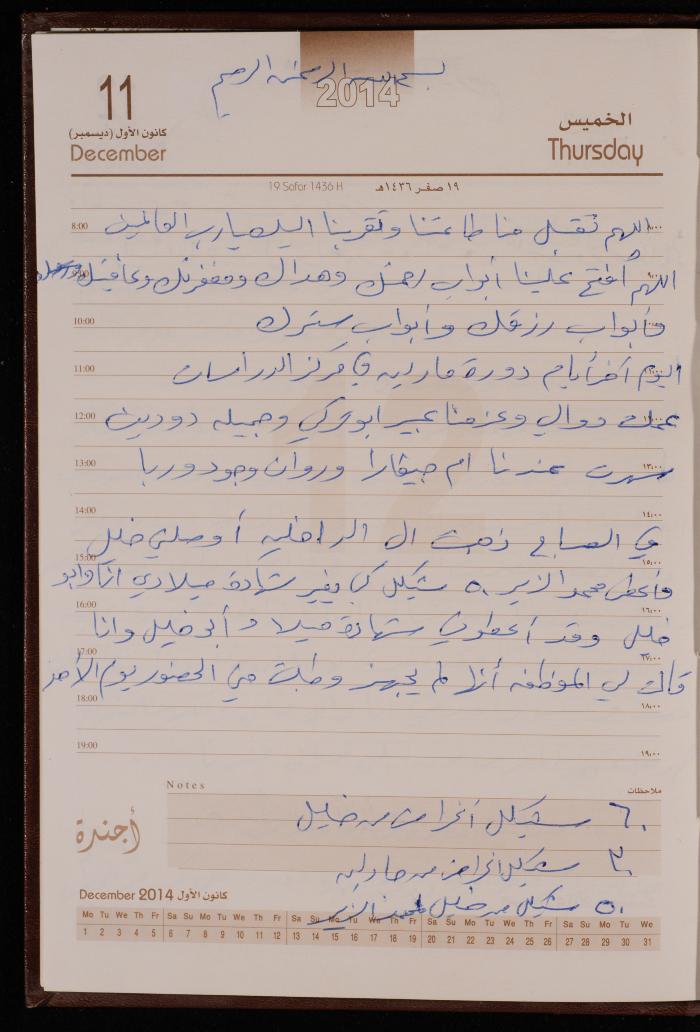 بسم الله الرحمن الرحيم
2014
11
كانون الأول (ديسمبر)
December
الخميس
Thursday
19 Safar 1436 H
١٩ صفر ١٤٣٦هـ
8:00 اللهم تقبل منا طاعتنا وتقربنا اليك يارب العالمين ٨:٠٠
9:00 اللهم أفتح علينا أبواب رحمتك وهداك ومغفرتك وعافيتك ٩:٠٠
10:00 وأبواب رزقك وأبواب سترك
11:00 اليوم آخر أيام دورة مارليه في مركز الدراسات
12:00 عملت دوالي وعزمنا عبير ابو تركي وجميله دودين
13:00 سهرت عندنا ام جيفارا وروان وجود وربا ١٣:٠٠
14:00 ١٤:٠٠
في الصباح ذهبت الى الداخليه أوصلني خليل
15:00 ١٥:٠٠
وأعطى محمد الزير ٥٠ شيكل كي يغير شهادة ميلادي انا وابو
16:00 ١٦:٠٠
خليل وقد أعطوني شهادة ميلاد أبو خليل وانا
17:00 ١٧:٠٠
قالت لي الموظفه أنها لم تجهز وطلبت مني الحضور يوم الأحد
18:00 ١٨:٠٠
19:00 ١٩:٠٠
Notes
ملاحظات
أجندة
٦٠ شيكل أخذت من خليل
٣٠ شيكل من
٥٠ شيكل من خليل لمحمد الزير
December 2014 كانون الأول
Mo Tu We Th Fr Sa Su Mo Tu We Th Fr Sa Su Mo Tu We Th Fr Sa Su Mo Tu We Th Fr Sa Su Mo Tu We
1 2 3 4 5 6 7 8 9 10 11 12 13 14 15 16 17 18 19 20 21 22 23 24 25 26 27 28 29 30 31